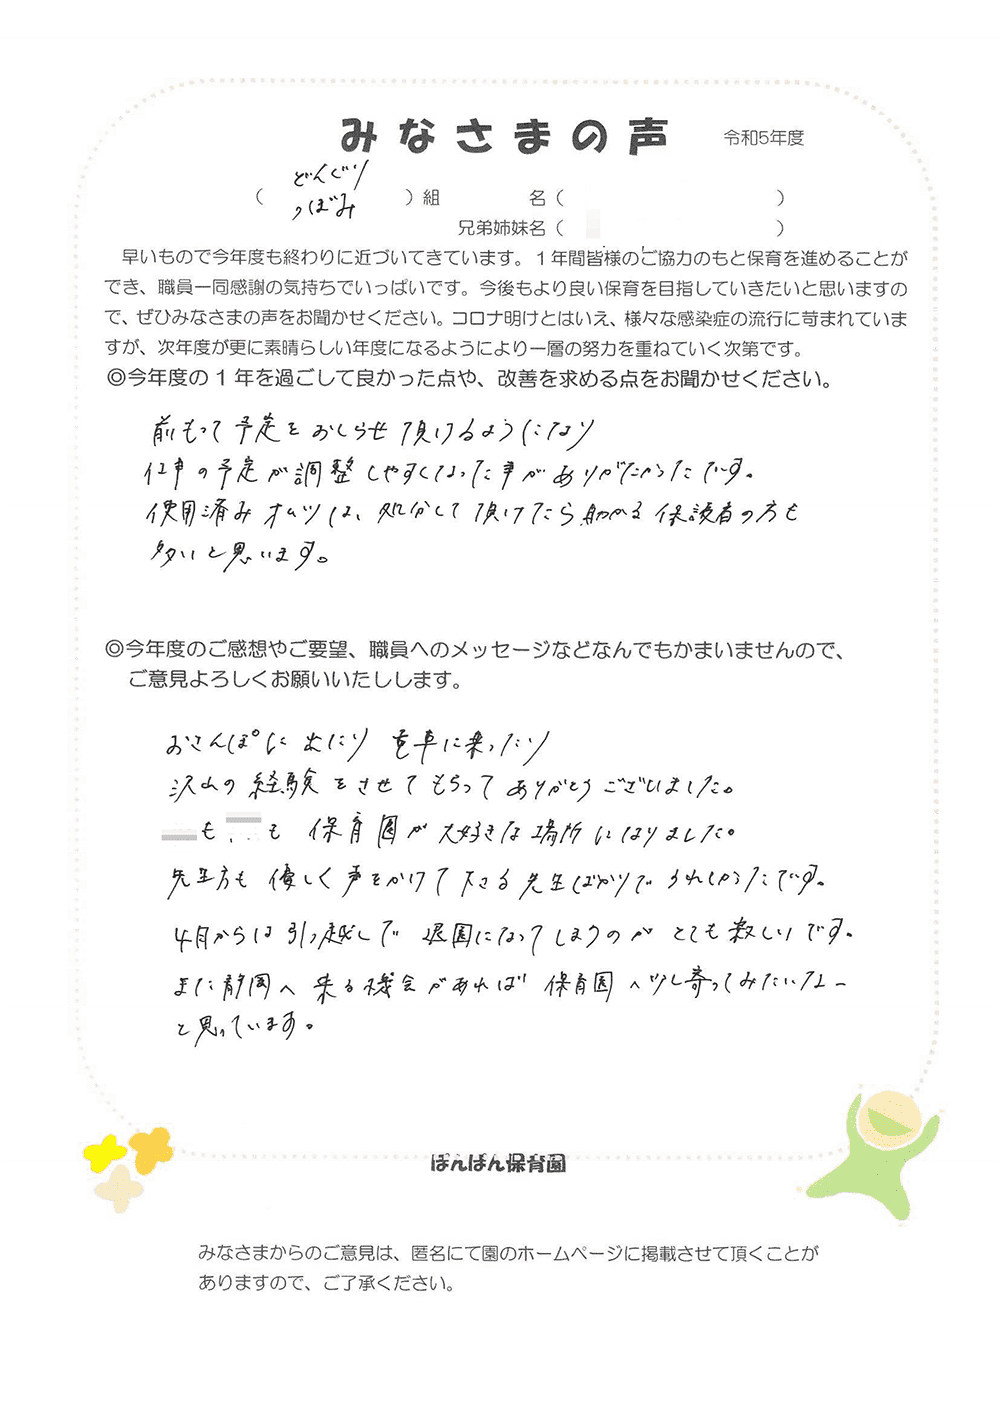 みなさまの声 令和5年度
どんぐり
( )組 名( )
つぼみ
兄弟姉妹名( )
早いもので今年度も終わりに近づいてきています。1年間皆様のご協力のもと保育を進めることが
でき、職員一同感謝の気持ちでいっぱいです。今後もより良い保育を目指していきたいと思いますの
で、ぜひみなさまの声をお聞かせください。コロナ明けとはいえ、様々な感染症の流行に苛まれていま
すが、次年度が更に素晴らしい年度になるようにより一層の努力を重ねていく次第です。
◎今年度の1年を過ごして良かった点や、改善を求める点をお聞かせください。
前もって予定をおしらせ頂けるようになり
仕事の予定が調整しやすくなった事がありがたかったです。
使用済みオムツは、処分して頂けたら助かる保護者の方も
多いと思います。
◎今年度のご感想やご要望、職員へのメッセージなどなんでもかまいませんので、
ご意見よろしくお願いいたしします。
おさんぽに出たり 電車に乗ったり
沢山の経験をさせてもらってありがとうございました。
も も 保育園が大好きな場所になりました。
先生方も優しく声をかけて下さる先生ばかりでうれしかったです。
4月からは引っ越しで 退園になってしまうのがとても寂しいです。
また静岡へ来る機会があれば 保育園へ少し寄ってみたいなー
と思っています。
ぽんぽん保育園
みなさまからのご意見は、匿名にて園のホームページに掲載させて頂くことが
ありますので、ご了承ください。